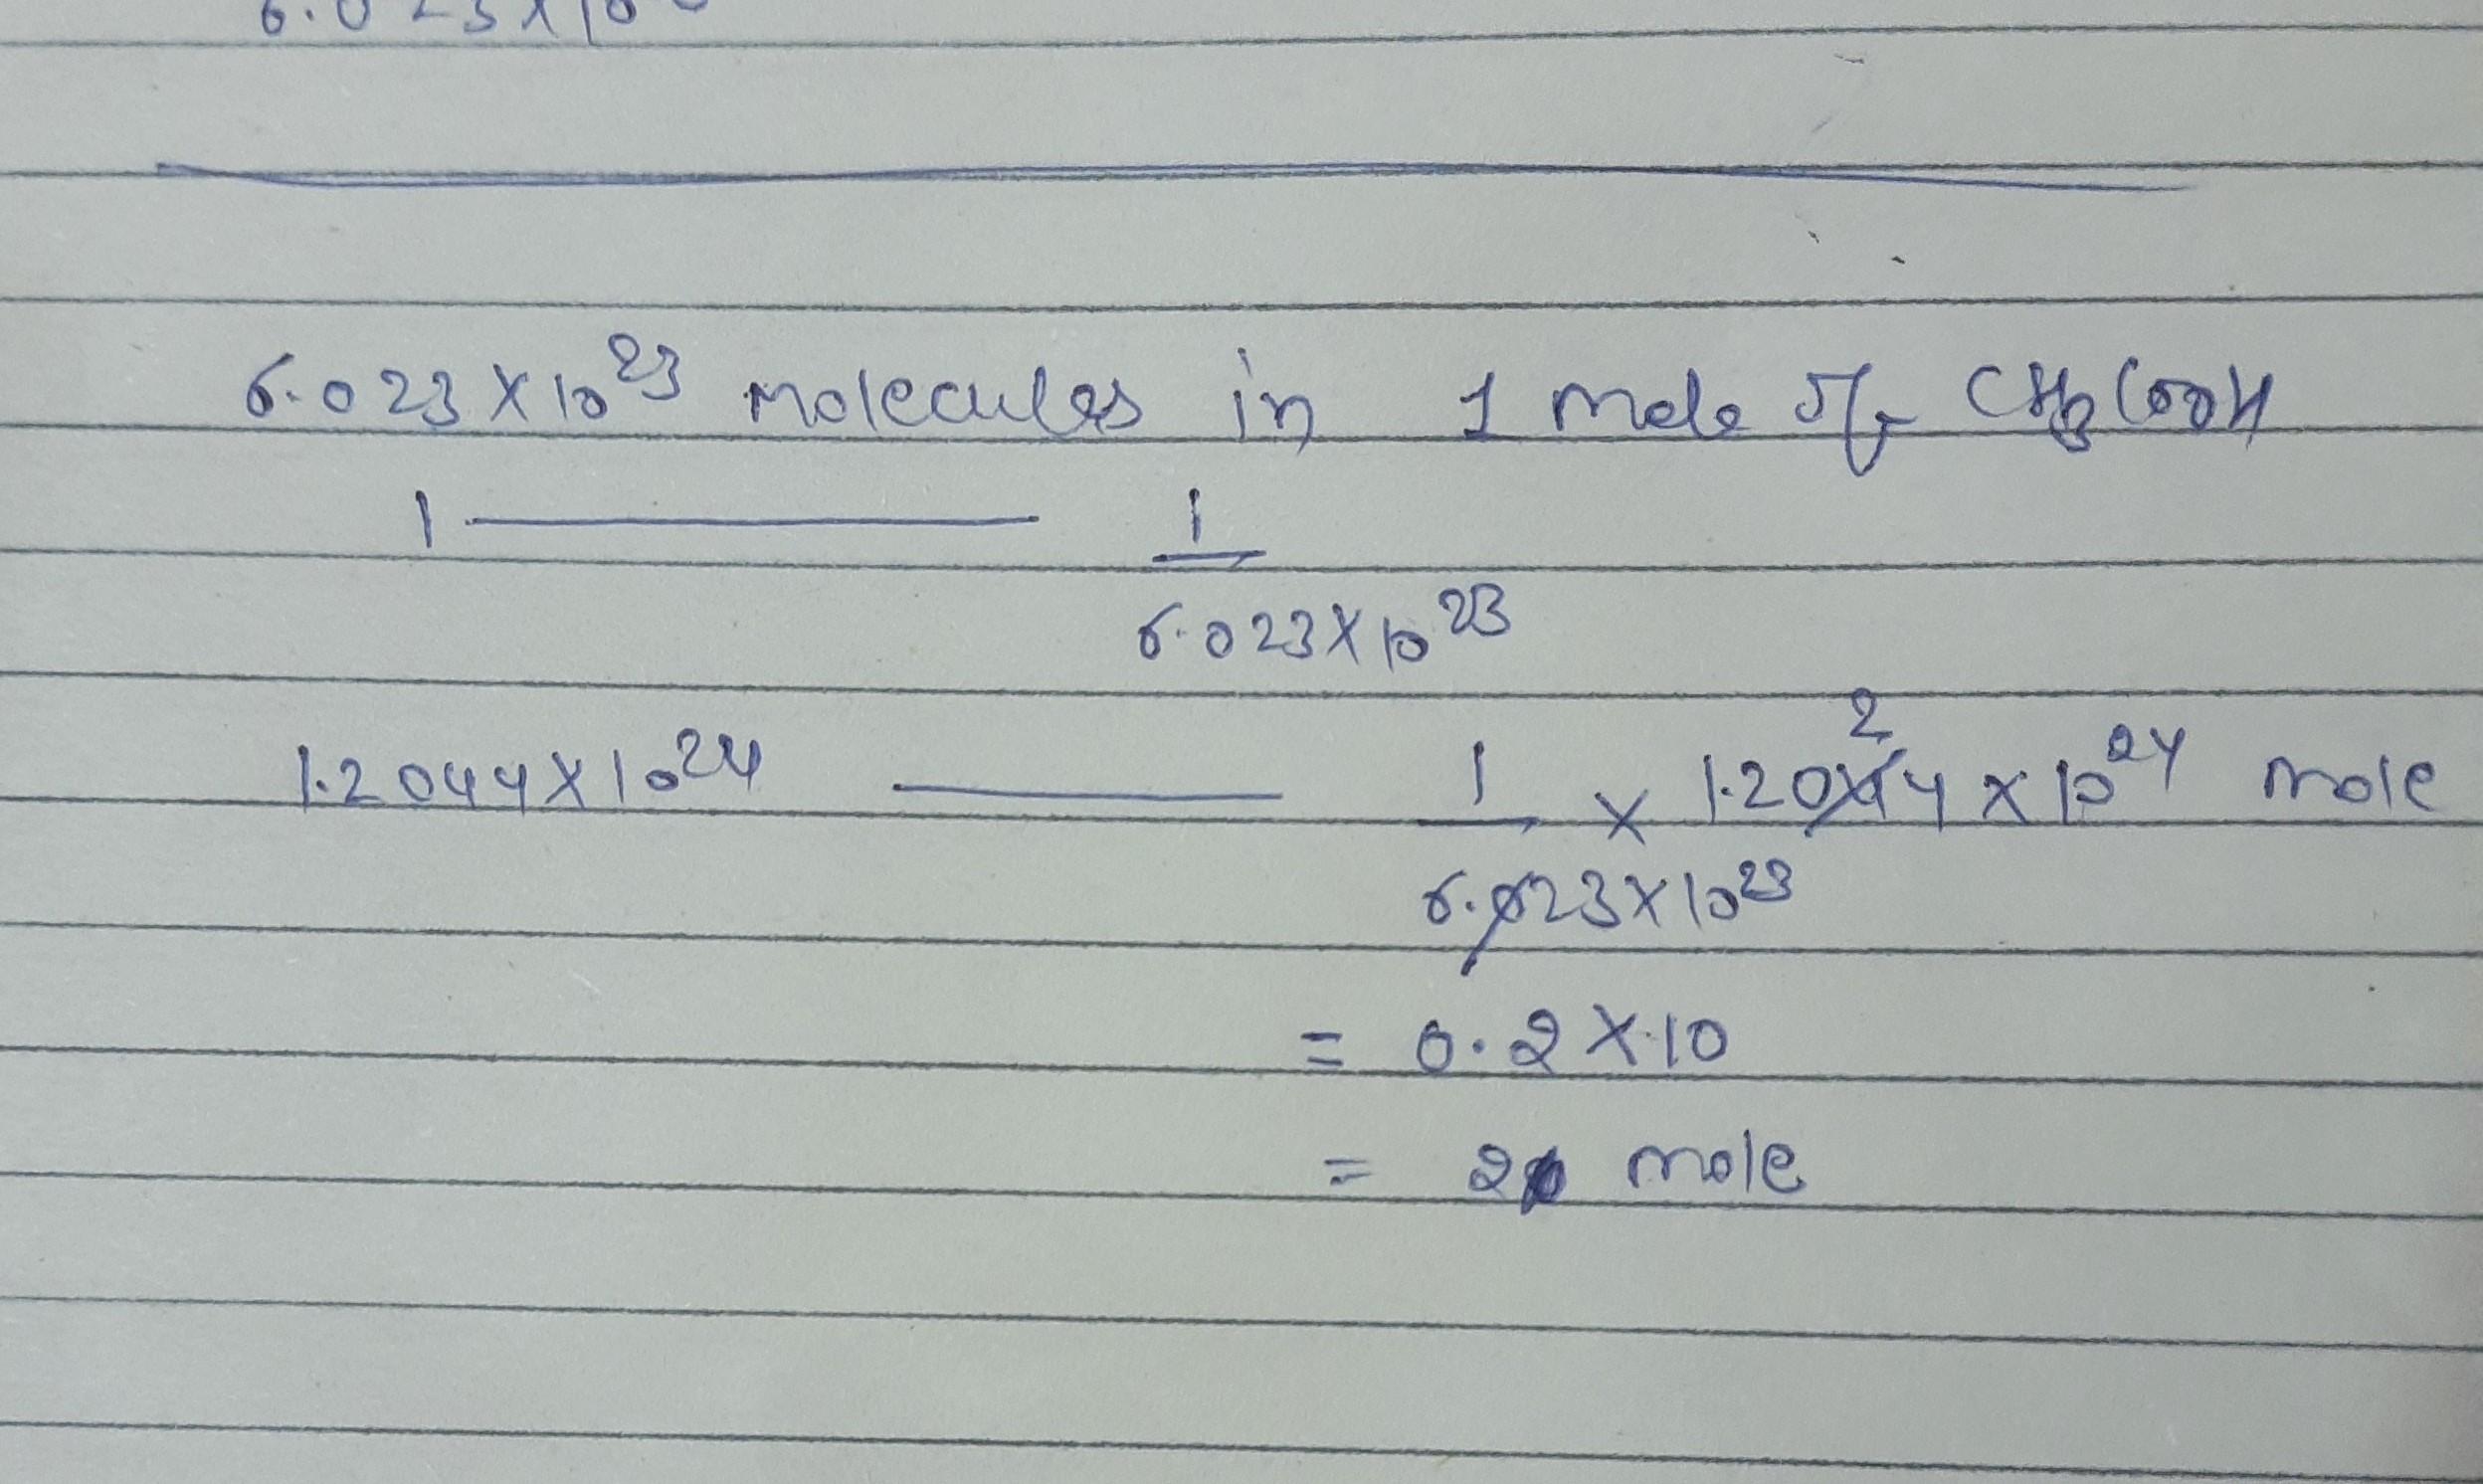 6.023 × 10
6.023 × 10²³ molecules in 1 mole of CH₃COOH
1 —— 1
6.023 × 10²³
2
1.2044 × 10²⁴ —— 1 × 1.2044 × 10²⁴ mole
6.023 × 10²³
= 0.2 × 10
= 2 mole